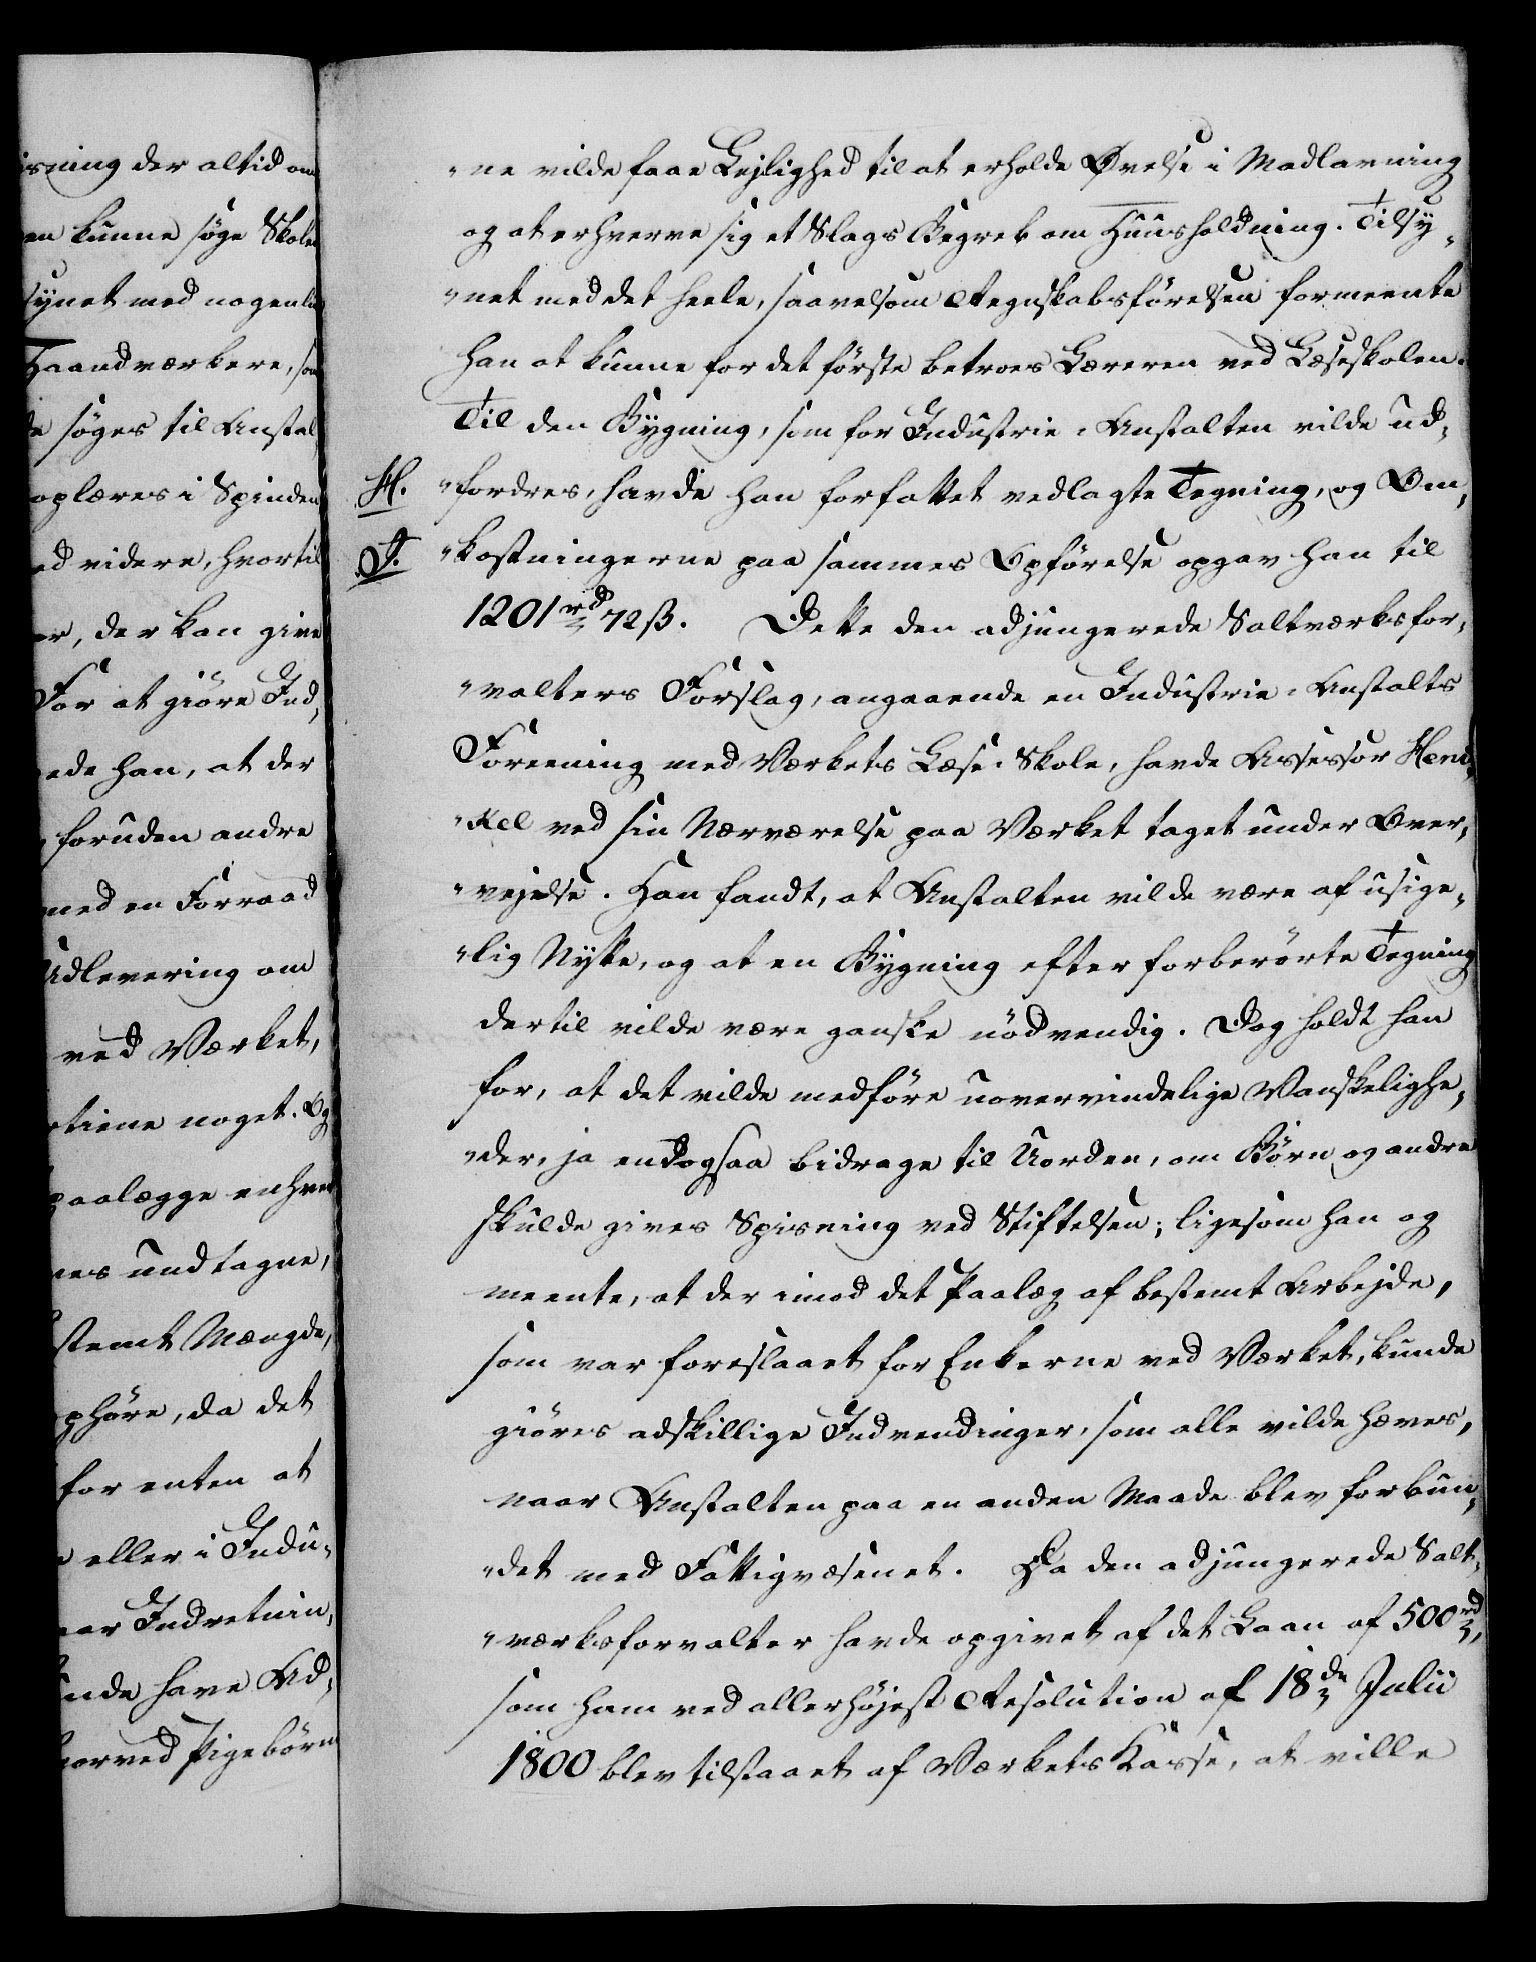 isning der altid om
en kunne søge Skole
synet med nogenlu
Haandværkere, som
de søges til Anstal
oplæres i Spinden
ed videre, hvortil
er, der kan give
For at giöre Ind,
ede han, at der
foruden andre
med en Forraad
Udlevering om
ved Værket,
rtiene noget. Og
paalægge enhver
nes undtagne,
stemt Mængde,
phøre, da det
for enten at
eller i Indu,
aar Indretnin,
unde have Ad,
hvorved Pigebörn
"ne vilde faae Lejlighed til at erholde Øvelse i Madlavning
og at erhverve sig et Slags Begreb om Huusholdning. Tilsy,
"net med det heele, saavelsom Regnskabsförelsen formeente
han at kunne for det förste betroes Læreren ved Læseskolen.
Til den Bygning, som for Industrie-Anstalten vilde ud,
H. "fordres, havde han forfattet vedlagte Tegning, og Om,
J. "kostningerne paa sammes Opförelse opgav han til
1201 rd 72 ß. Dette den adjungerede Saltværksfor,
"valters Forslag, angaaende en Industrie-Anstalts
Foreening med Værkets Læse-Skole, havde Assessor Hen,
"kel ved sin Nærværelse paa Værket taget under Over,
"vejelse. Han fandt, at Anstalten vilde være af usige,
"lig Nytte, og at en Bygning efter forberörte Tegning
dertil vilde være ganske nödvendig. Dog holdt han
for, at det vilde medföre uovervindelige Vanskelighe,
"der, ja endogsaa bidrage til Uorden, om Börn og andre
skulde gives Spisning ved Stiftelsen; ligesom han og
meente, at der imod det Paalæg af bestemt Arbejde,
som var foreslaaet for Enkerne ved Værket, kunde
giöres adskillige Indvendinger, som alle vilde hæves,
naar Anstalten paa en anden Maade blev forbun,
"det med Fattigvæsenet. Da den adjungerede Salt,
"værksforvalter havde opgivet af det Laan af 500 rd,
som ham ved allerhöjest Resolution af 18de Julii
1800 blev tilstaaet af Værkets Kasse, at ville